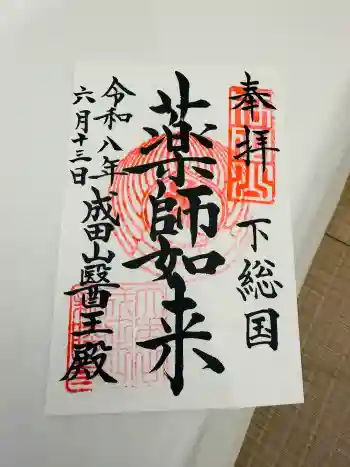 奉拝
下総国
薬師如来
令和八年
六月十三日
成田山醫王殿